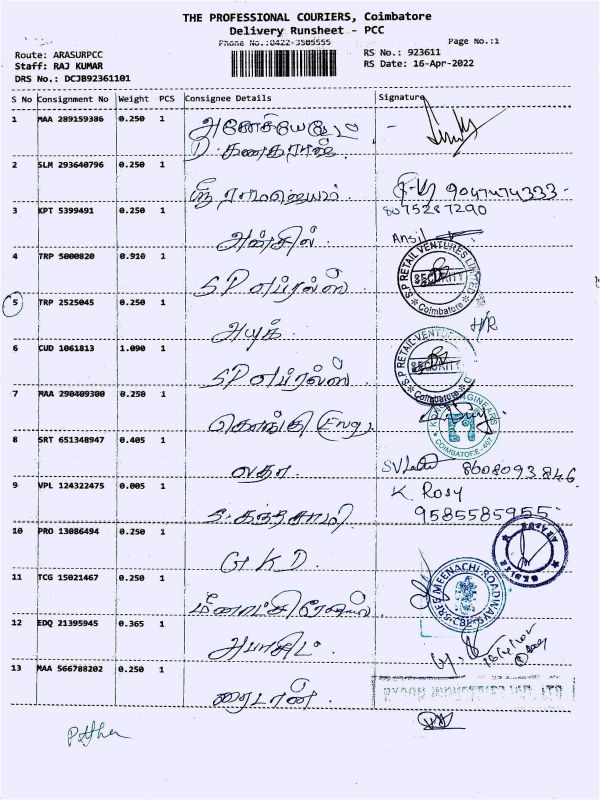 THE PROFESSIONAL COURIERS, Coimbatore
Delivery Runsheet - PCC
Phone No.:0422-3505555
Page No.:1
Route: ARASURPCC
Staff: RAJ KUMAR
DRS No.: DCJB92361101
RS No.: 923611
RS Date: 16-Apr-2022
S No Consignment No Weight PCS Consignee Details Signature
1 MAA 289159386 0.250 1
D. கனகராஜ்
2 SLM 293640796 0.250 1
ஸ்ரீ ராமஜெயம் 9047474333
8075287290
3 KPT 5399491 0.250 1
அன்சில் Ansil
4 TRP 5000820 0.910 1
S.P எப்ரல்ஸ்
S.P RETAIL VENTURES LIMITED
SECURITY
Coimbatore
5 TRP 2525045 0.250 1
H/R
6 CUD 1061813 1.090 1
S.P எப்ரல்ஸ்
S.P RETAIL VENTURES LIMITED
SECURITY
Coimbatore
7 MAA 290409300 0.250 1
கொங்கு (Eng)
8 SRT 651348947 0.405 1
வதா 8608093846
9 VPL 124322475 0.005 1
S. கந்தசாமி
K Rosy
9585585955
10 PRO 13086494 0.250 1
G.K.D.
11 TCG 15021467 0.250 1
SREE MEENACHI ROADWAYS
CBE
12 EDQ 21395945 0.365 1
13 MAA 566788202 0.250 1
ரைடான்.